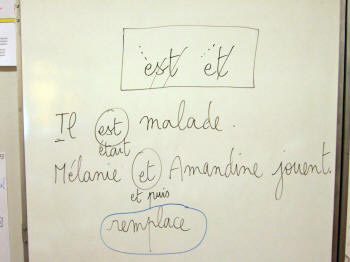 est et
Il est malade.
était
Mélanie et Amandine jouent.
et puis
remplace